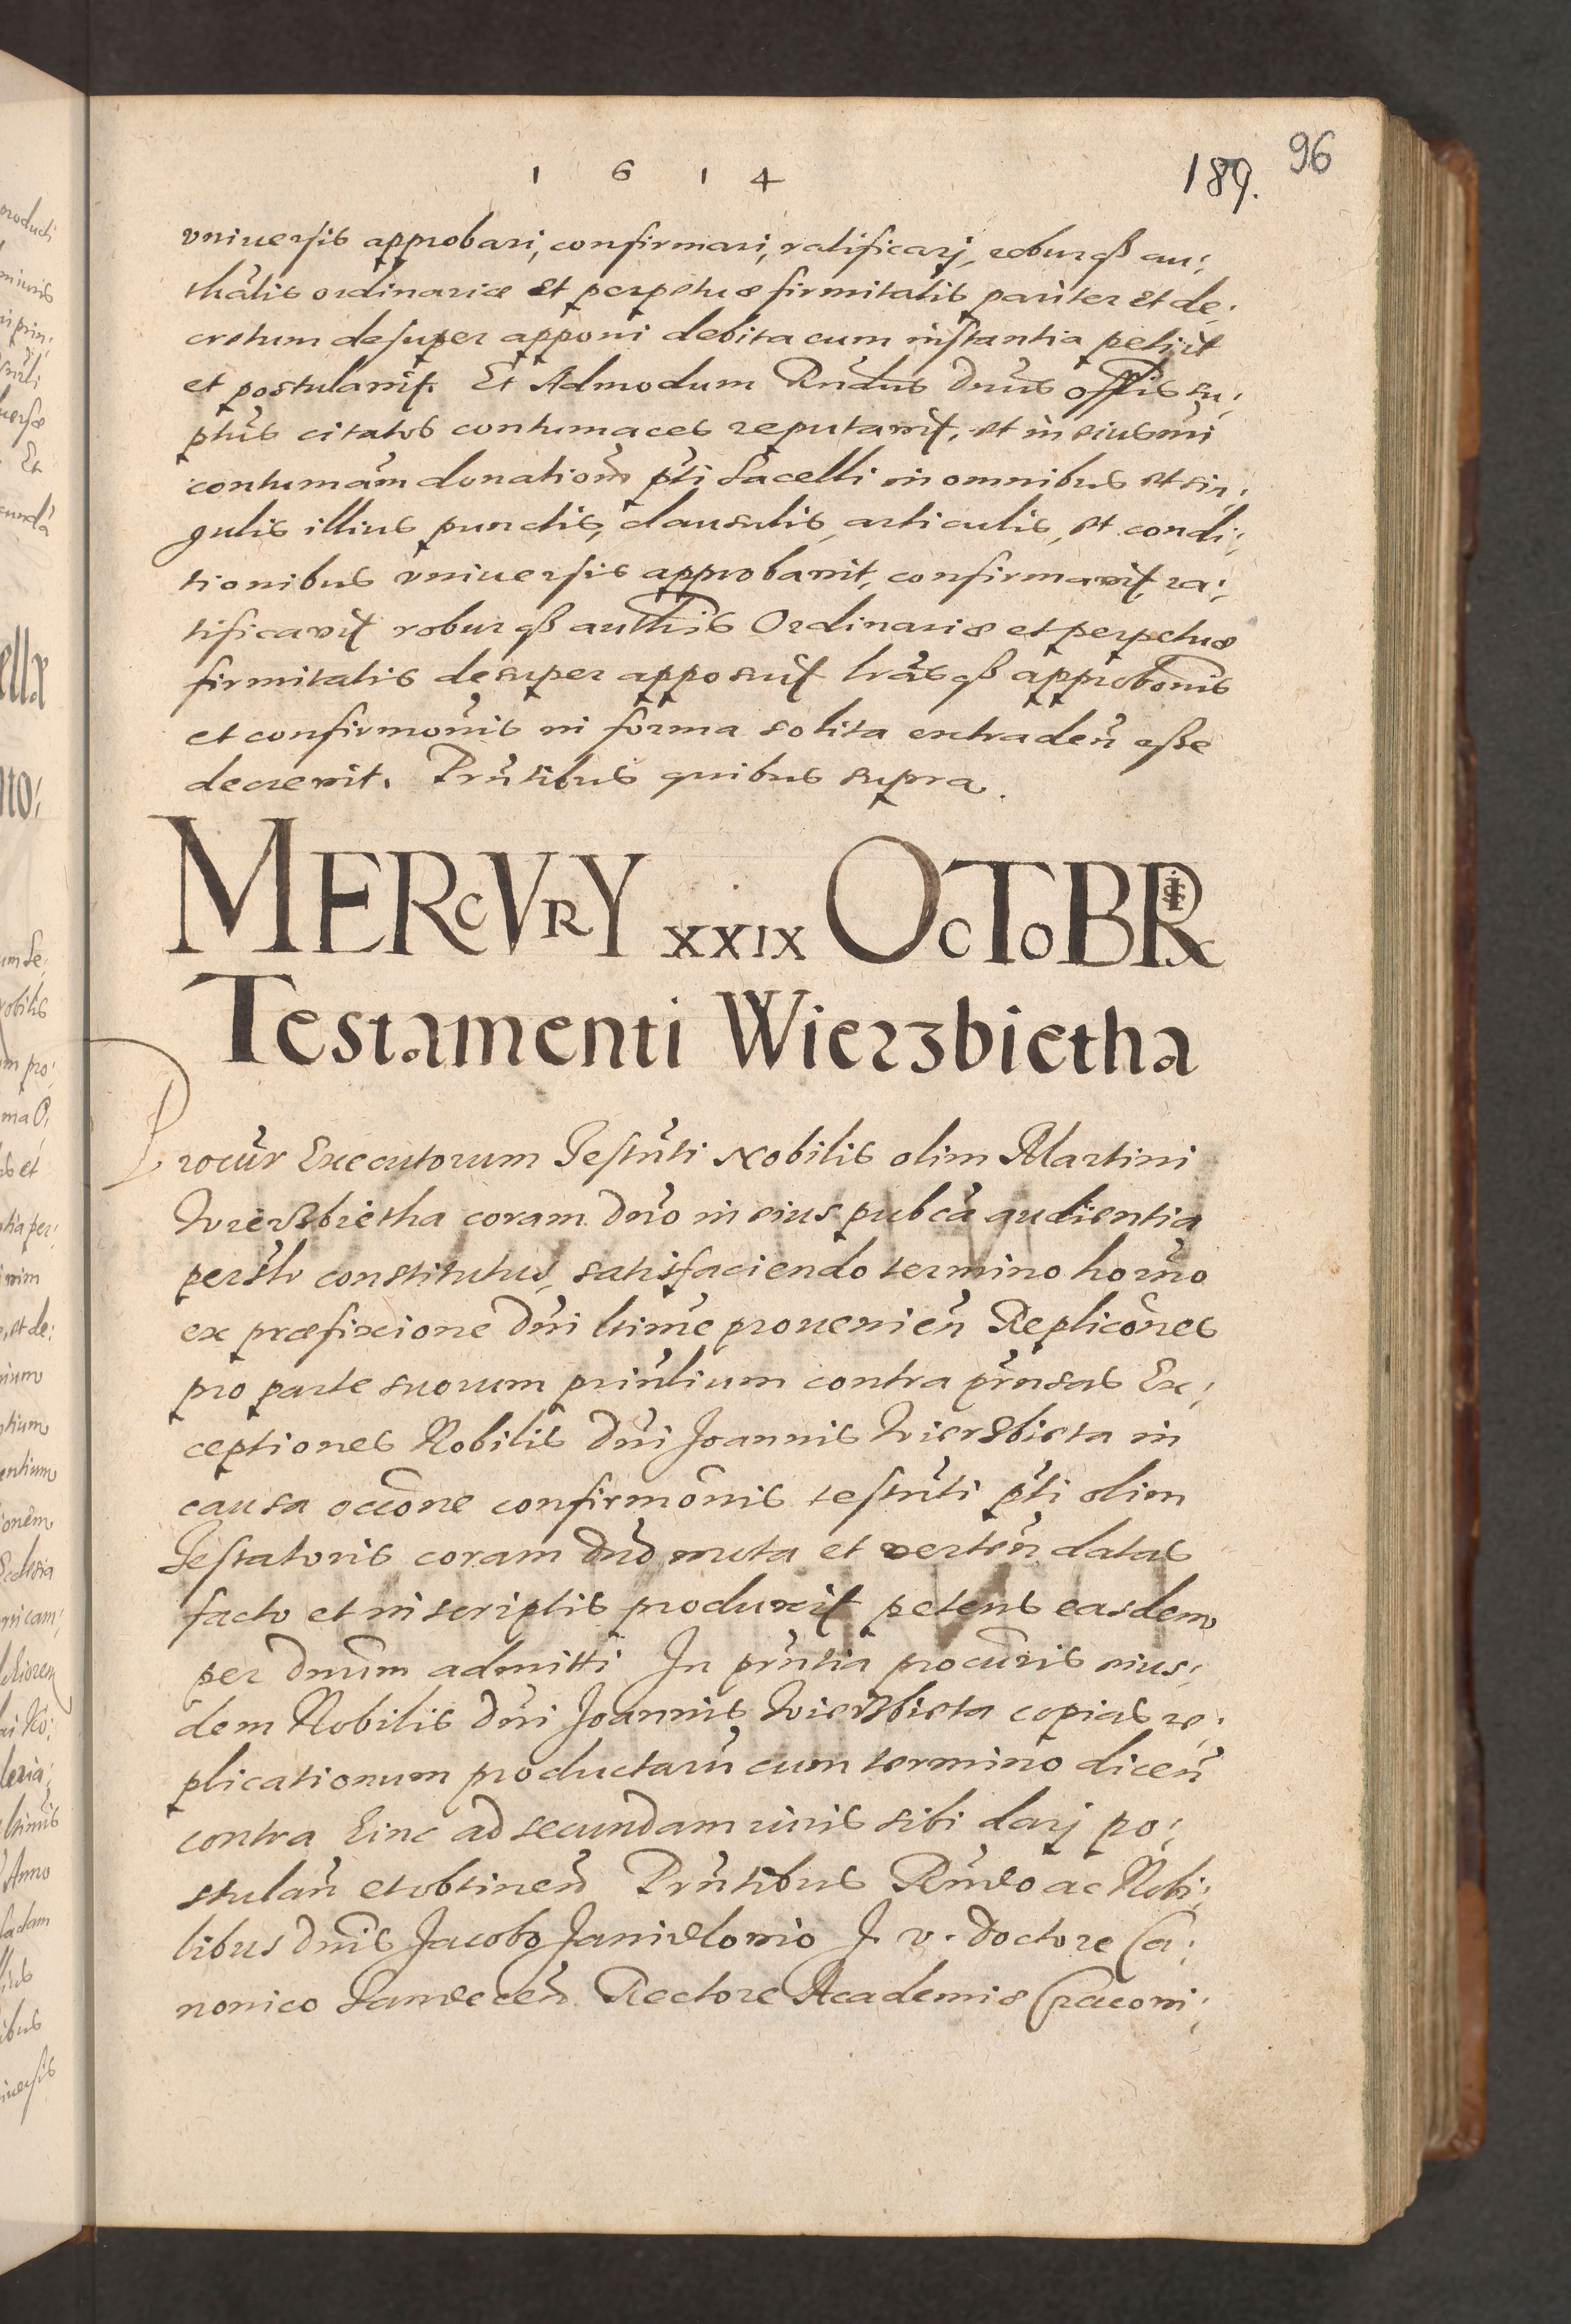 1 6 1 4
189.
96
vniuersis approbari, confirmari, ratificarj, roburqß au:
thãlis ordinariæ et perpetuæ firmitatis pariter et de:
cretum desuper apponi debita cum instantia petijt
et postulavit. Et Admodum Rndus Dnus offlis su:
ptus citatos contumaces reputavit, et in eiusmi
contumam donationem pti Sacelli in omnibus et sin:
gulis illius punctis, clausulis, articulis, et condi:
tionibus vniuersis approbavit, confirmavit, ra:
tificavit roburqß authis Ordinariæ et perpetuæ
firmitatis desuper apposuit lrasqß approbonis
et confirmonis in forma solita extraden eße
decrevit. Prntibus quibus supra.
MERCVRY XXIX OCTOBRIS
Testamenti Wierzbietha
Procur Executorum Testnti Nobilis olim Martini
Wierzbietha coram dno in eius pubca audientia
persltr constitutus, satisfaciendo termino horno
ex præfixione Dni ltime prouenien Replicones
pro parte suorum prinlium contra prnsas Ex:
ceptiones Nobilis Dni Joannis Wierzbieta in
causa occone confirmonis testnti pti olim
Testatoris coram dno mota et verten datas
facto et in scriptis produxit petens easdem
per Dnum admitti In prntia procuris eius:
dem Nobilis Dni Joannis Wierzbieta copias re:
plicationum productaru cum termino dicen
contra hinc ad secundam iuris sibi darj po:
stulan et obtinen Prntibus Rndo ac Nobi:
libus dnis Jacobo Janidlovio J. v. Doctore Ca:
nonico Sandecen Rectore Academiæ Cracovi: